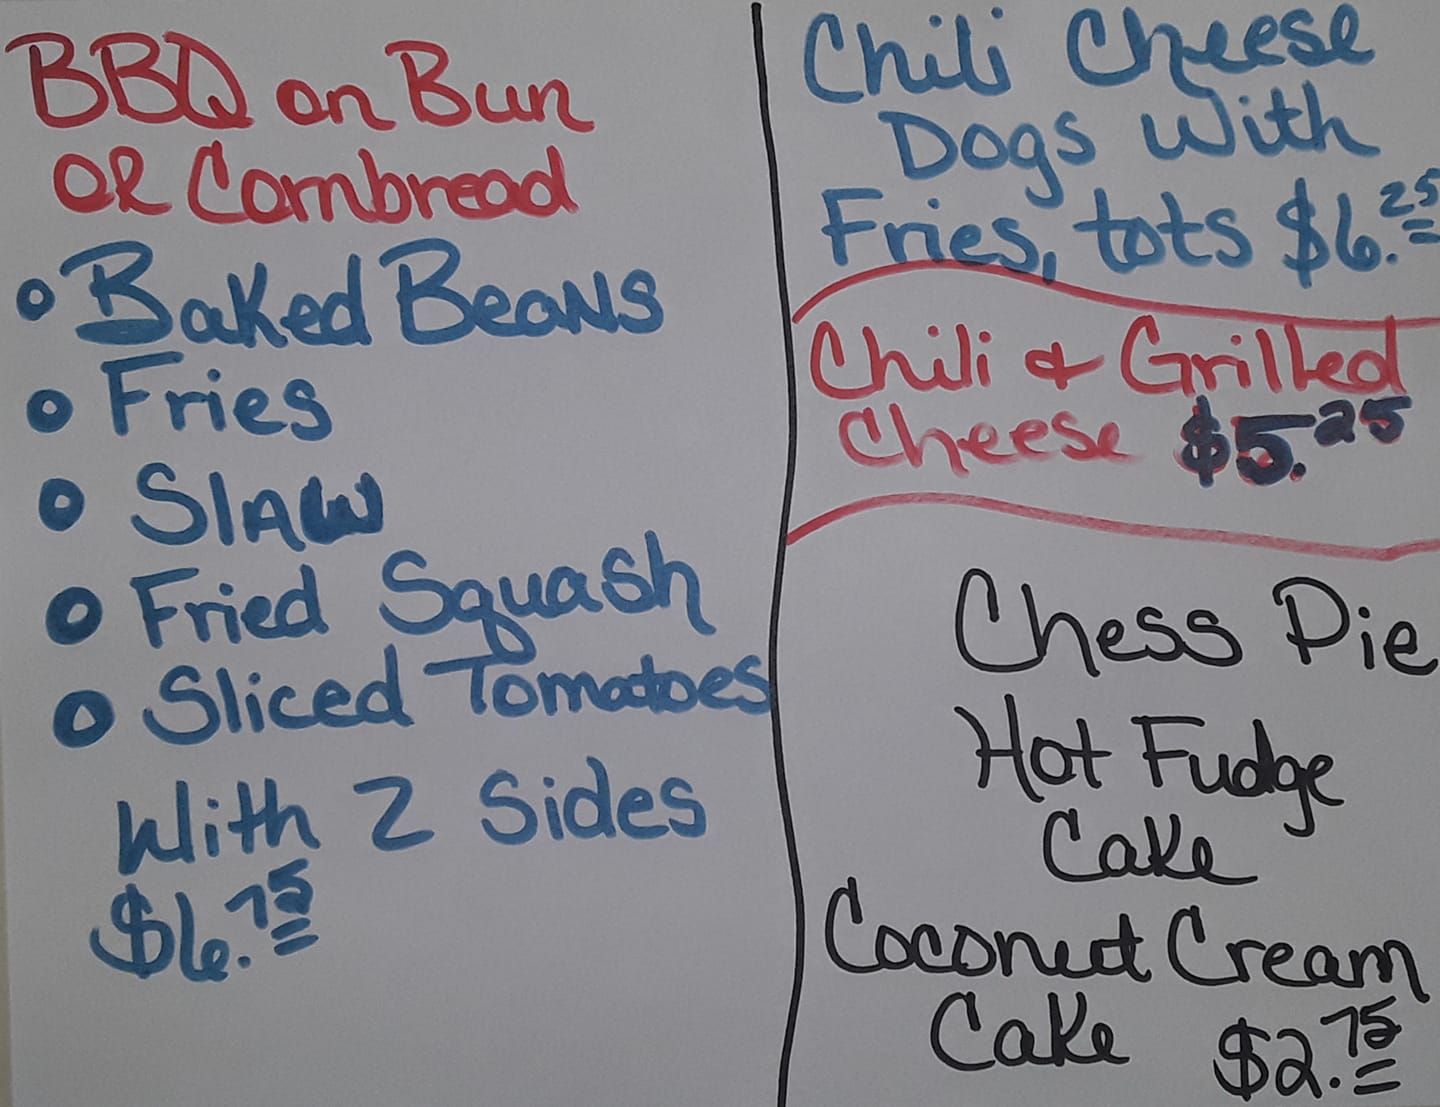 BBQ on Bun
OR Cornbread
Baked Beans
Fries
Slaw
Fried Squash
Sliced Tomatoes
With 2 Sides
$6.75
Chili Cheese
Dogs With
Fries, tots $6.25
Chili & Grilled
Cheese $5.25
Chess Pie
Hot Fudge
Cake
Coconut Cream
Cake $2.75